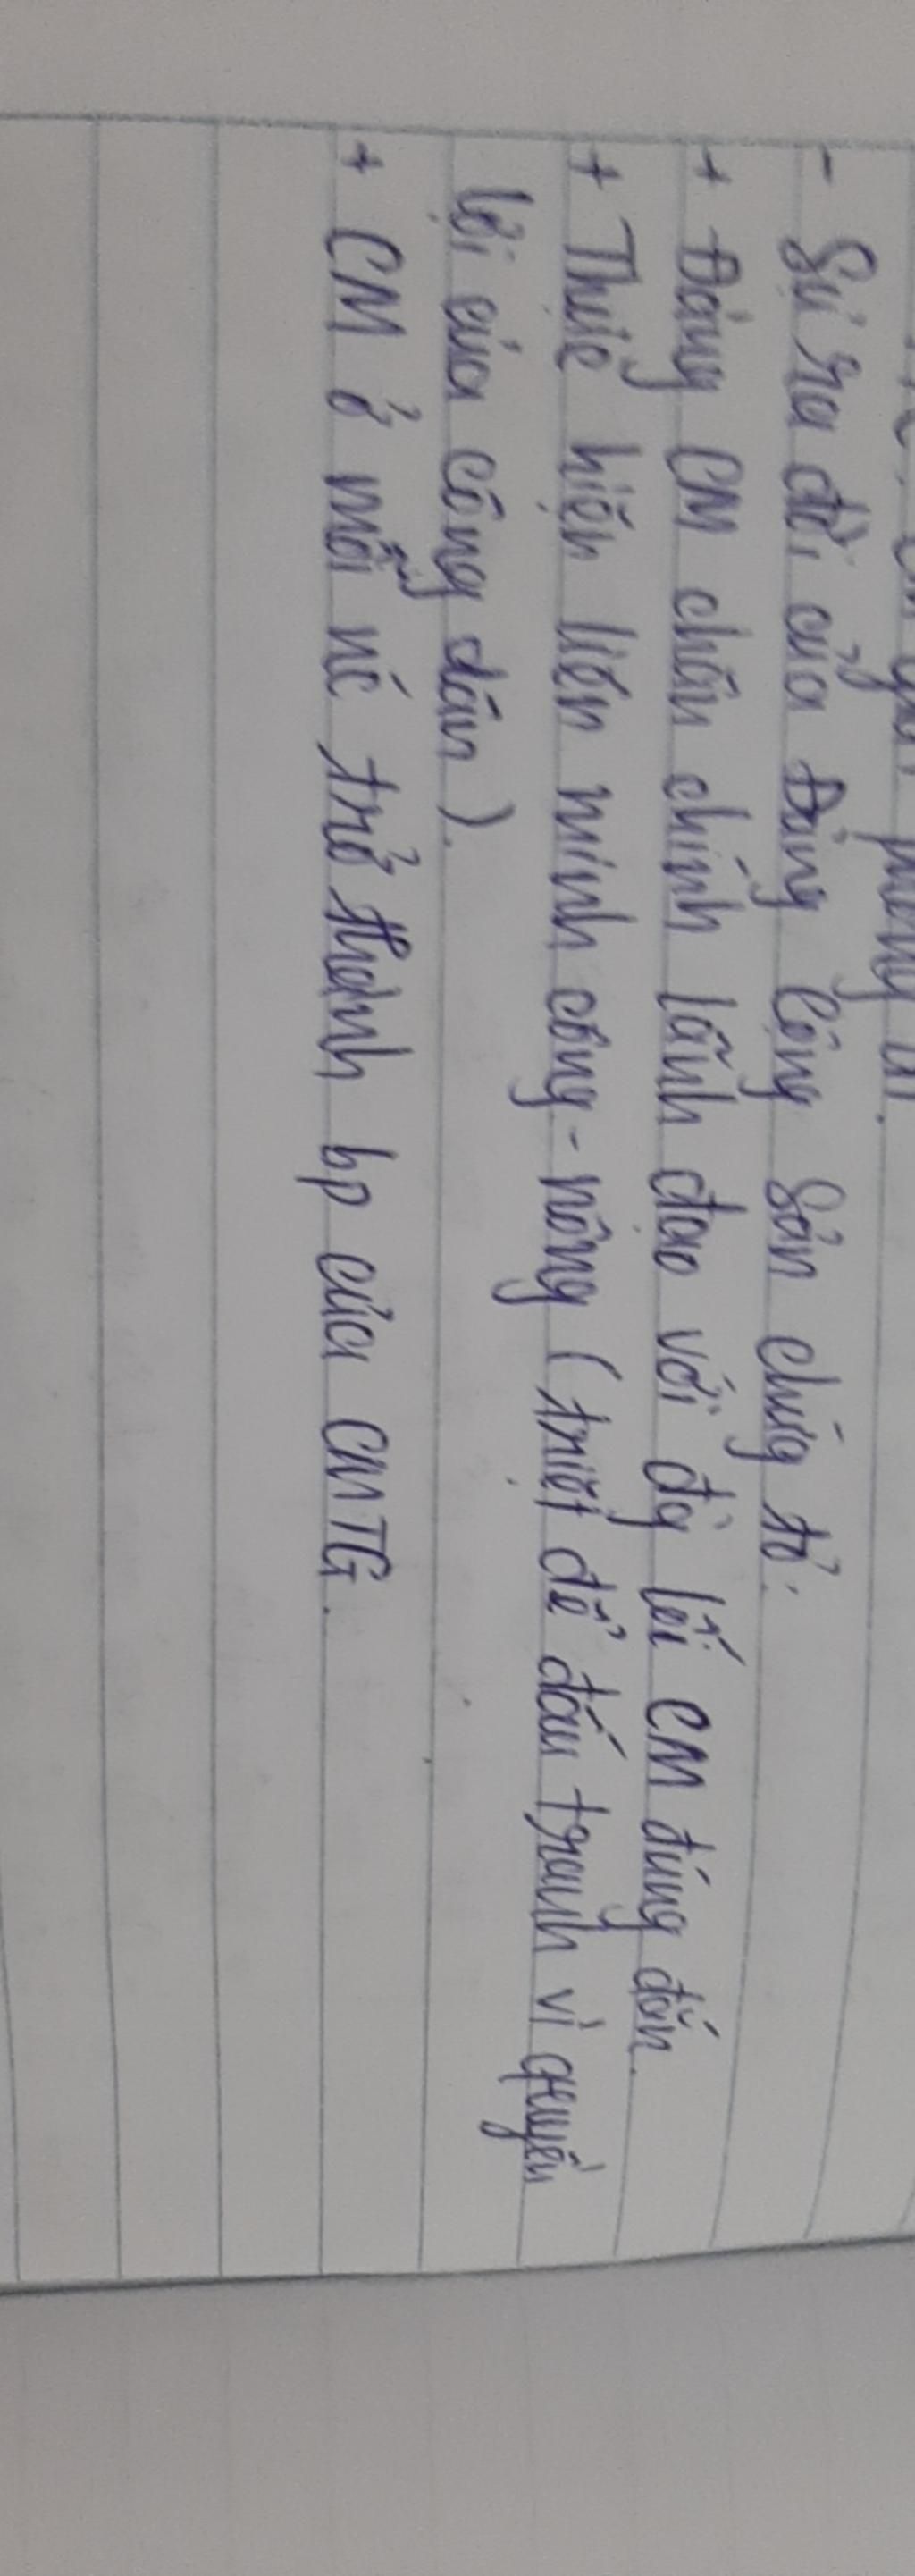 - Sự ra đời của Đảng Cộng Sản chứng tỏ:
+ Đảng CM chân chính lãnh đạo với đg lối CM đúng đắn.
+ Thực hiện liên minh công - nông (triệt để đấu tranh vì quyền
lợi của công dân).
+ CM ở mỗi nc trở thành bp của CMTG.